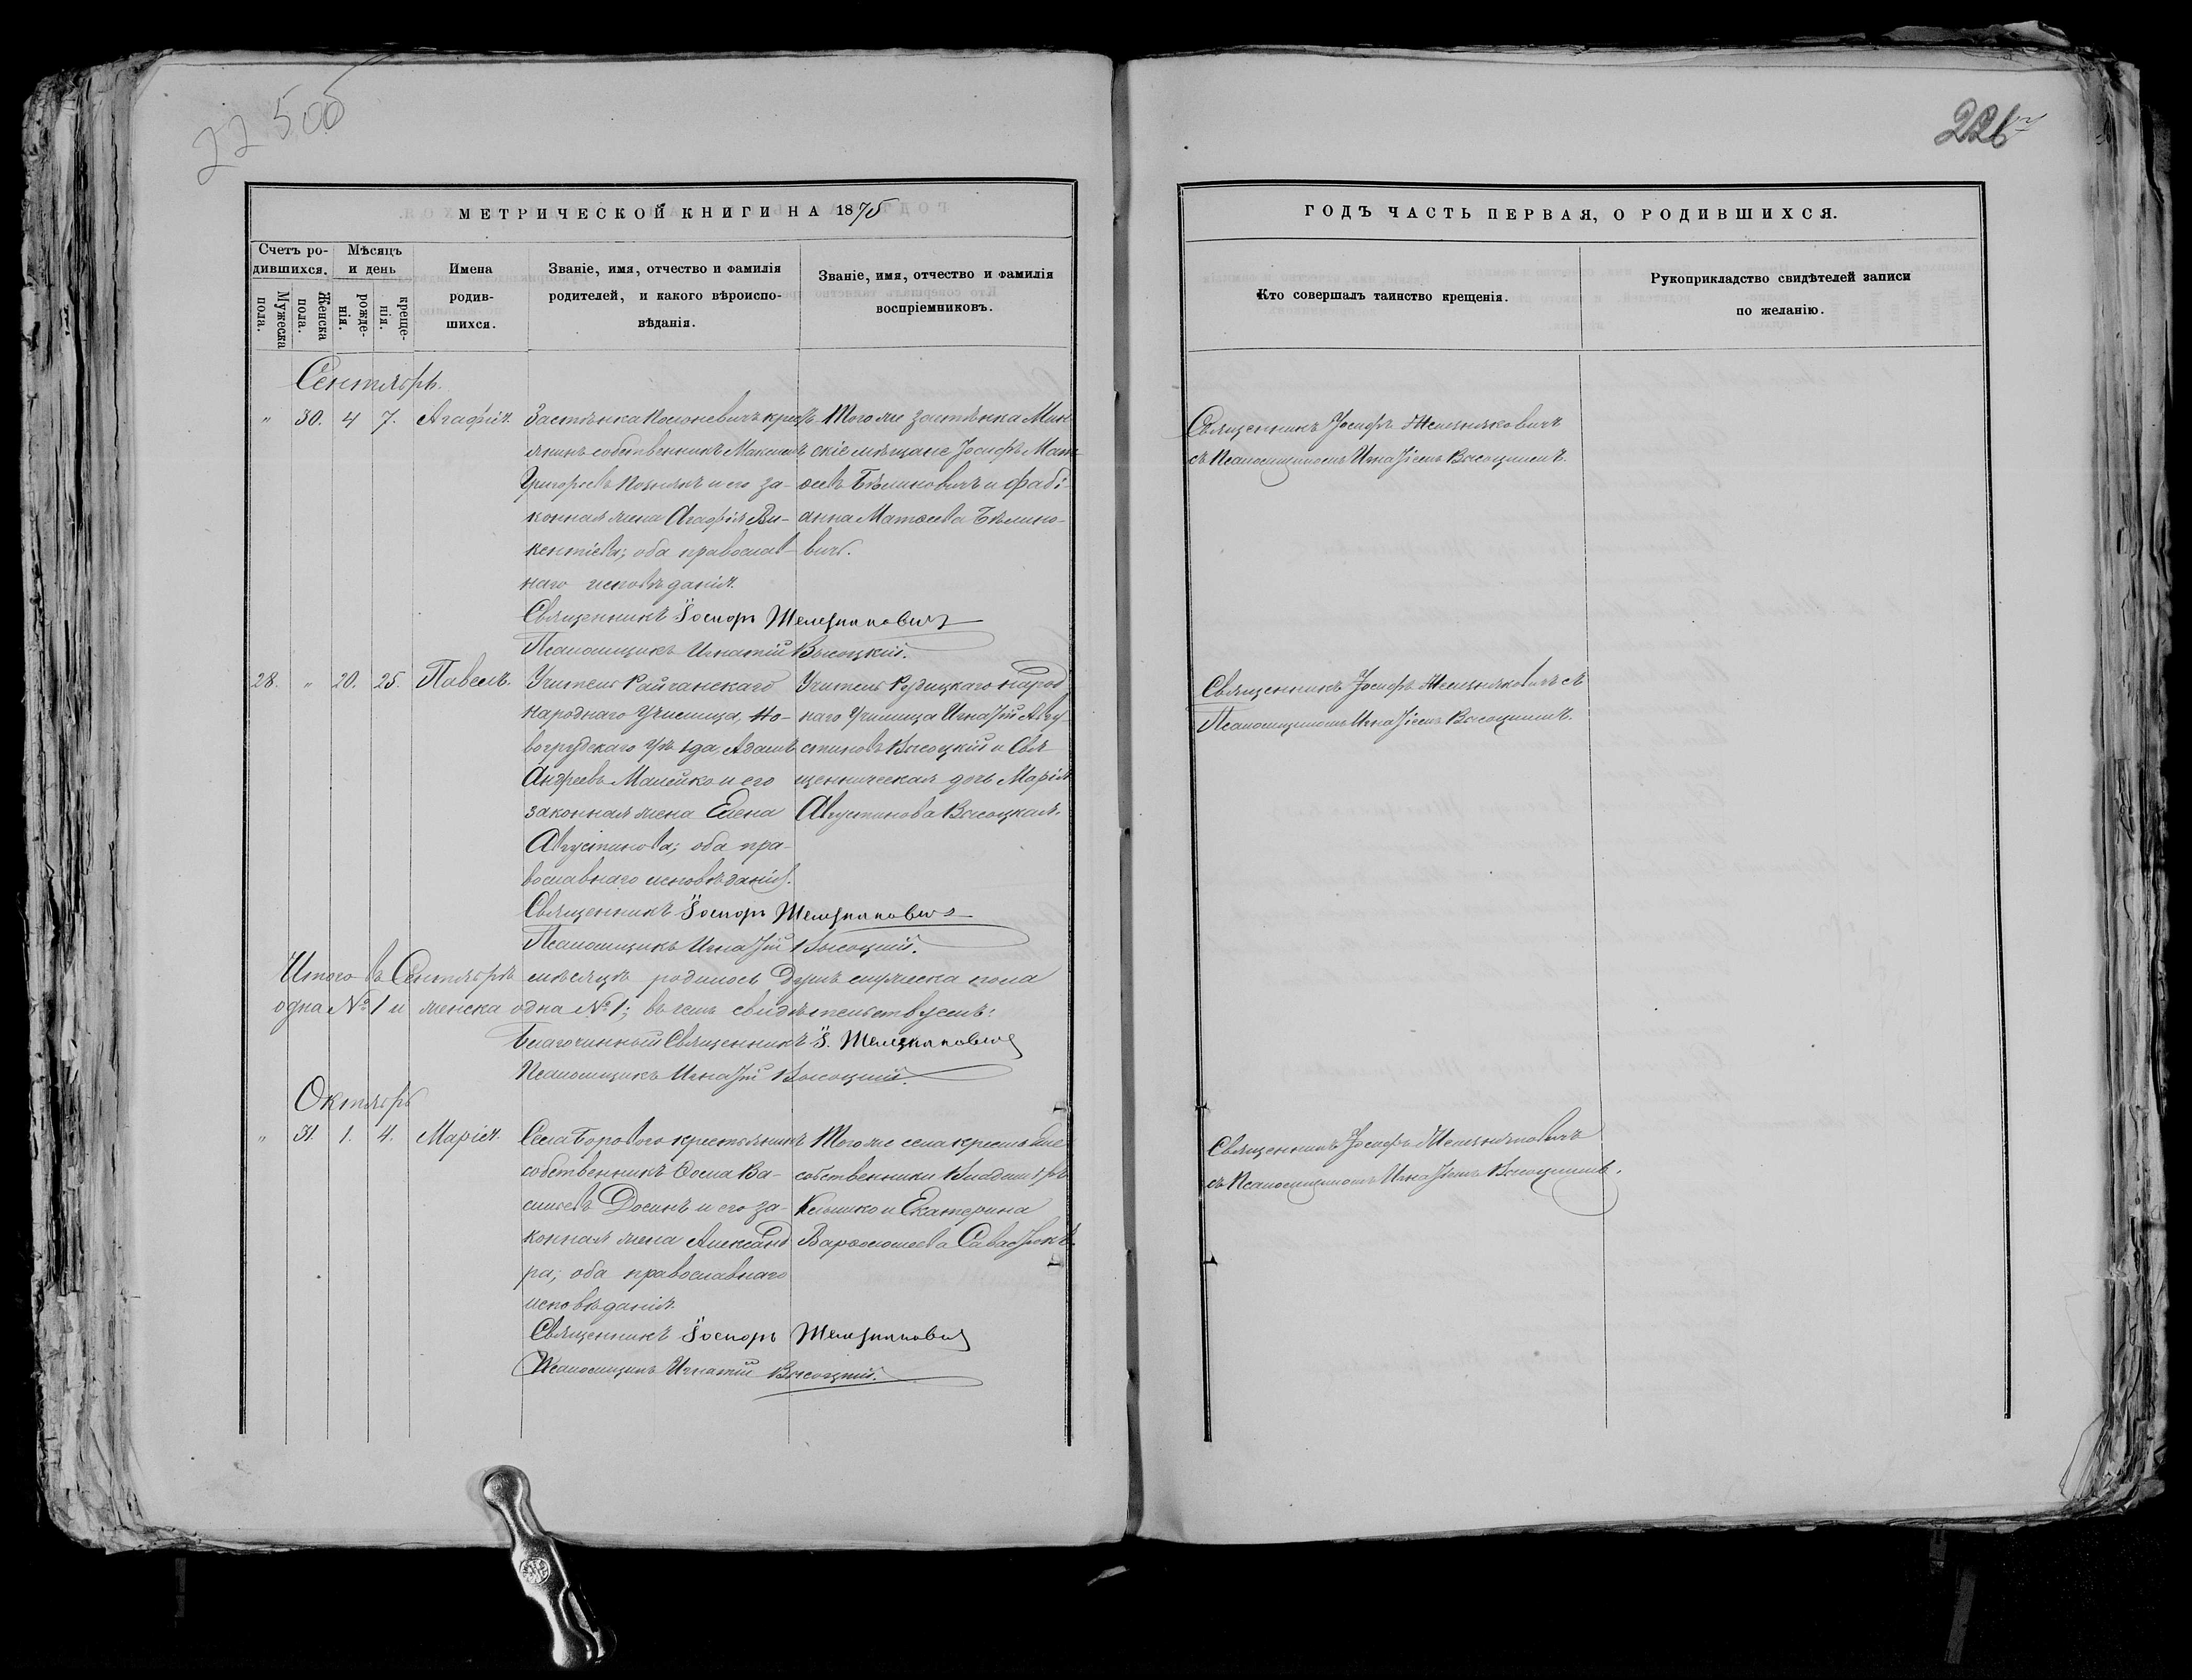 22 5об
226
МЕТРИЧЕСКОЙ КНИГИ НА 1875
ГОДЪ ЧАСТЬ ПЕРВАЯ, О РОДИВШИХСЯ.
Счетъ ро-
дившихся.
Мужеска
пола.
Женска
пола.
Мѣсяцъ
и день
рожде-
нія.
креще-
нія.
Имена
родив-
шихся.
Званіе, имя, отчество и фамилія
родителей, и какого вѣроиспо-
вѣданія.
Званіе, имя, отчество и фамилія
воспріемниковъ.
Кто совершалъ таинство крещенія.
Рукоприкладство свидѣтелей записи
по желанію.
Сентябрь.
" 30. 4 7. Агафія.
Застѣнка крест-
янинъ собственникъ
Григорьевъ Познякъ и его за-
конная жена Агафія Ви-
кентіева; оба православ-
наго исповѣданія.
Священникъ Іосифъ Железняковичъ
Псаломщикъ Игнатій Высоцкій.
Того же застѣнка Мин
скіе мѣщане Іосифъ Мат-
ѳеевъ Бѣлиновичъ и Фабі-
анна Матѳеева Бѣлино-
вичъ.
Священникъ Іосифъ Железняковичъ
съ Псаломщикомъ Игнатіемъ Высоцкимъ.
28. " 20. 25. Павелъ.
Учитель Райчанскаго
народнаго Училища, Но-
вогрудскаго уѣзда, Адамъ
Андреевъ Малейко и его
законная жена Елена
Августинова; оба пра-
вославнаго исповѣданія.
Священникъ Іосифъ Железняковичъ
Псаломщикъ Игнатій Высоцкій.
Учитель Рудицкаго народ
наго Училища Игнатій Авгу-
стиновъ Высоцкій и Свя
щенническая дочь Марія
Августинова Высоцкая.
Священникъ Іосифъ Железняковичъ съ
Псаломщикомъ Игнатіемъ Высоцкимъ.
Итого въ Сентябрѣ мѣсяцѣ родилось душъ мужеска пола
одна №1 и женска одна №1; въ чемъ свидѣтельствуемъ:
Благочинный Священникъ І. Железняковичъ
Псаломщикъ Игнатій Высоцкій.
Октябрь
" 31. 1. 4. Марія.
Села Борового крестьянинъ
собственникъ Ѳома Ва-
сильевъ Досинъ и его за-
конная жена Александ
ра; оба православнаго
исповѣданія.
Священникъ Іосифъ Железняковичъ
Псаломщикъ Игнатій Высоцкій.
Того же села крестьяне
собственники Владиміръ
и Екатерина
Варѳоломеева
Священникъ Іосифъ Железняковичъ
съ Псаломщикомъ Игнатіемъ Высоцкимъ.